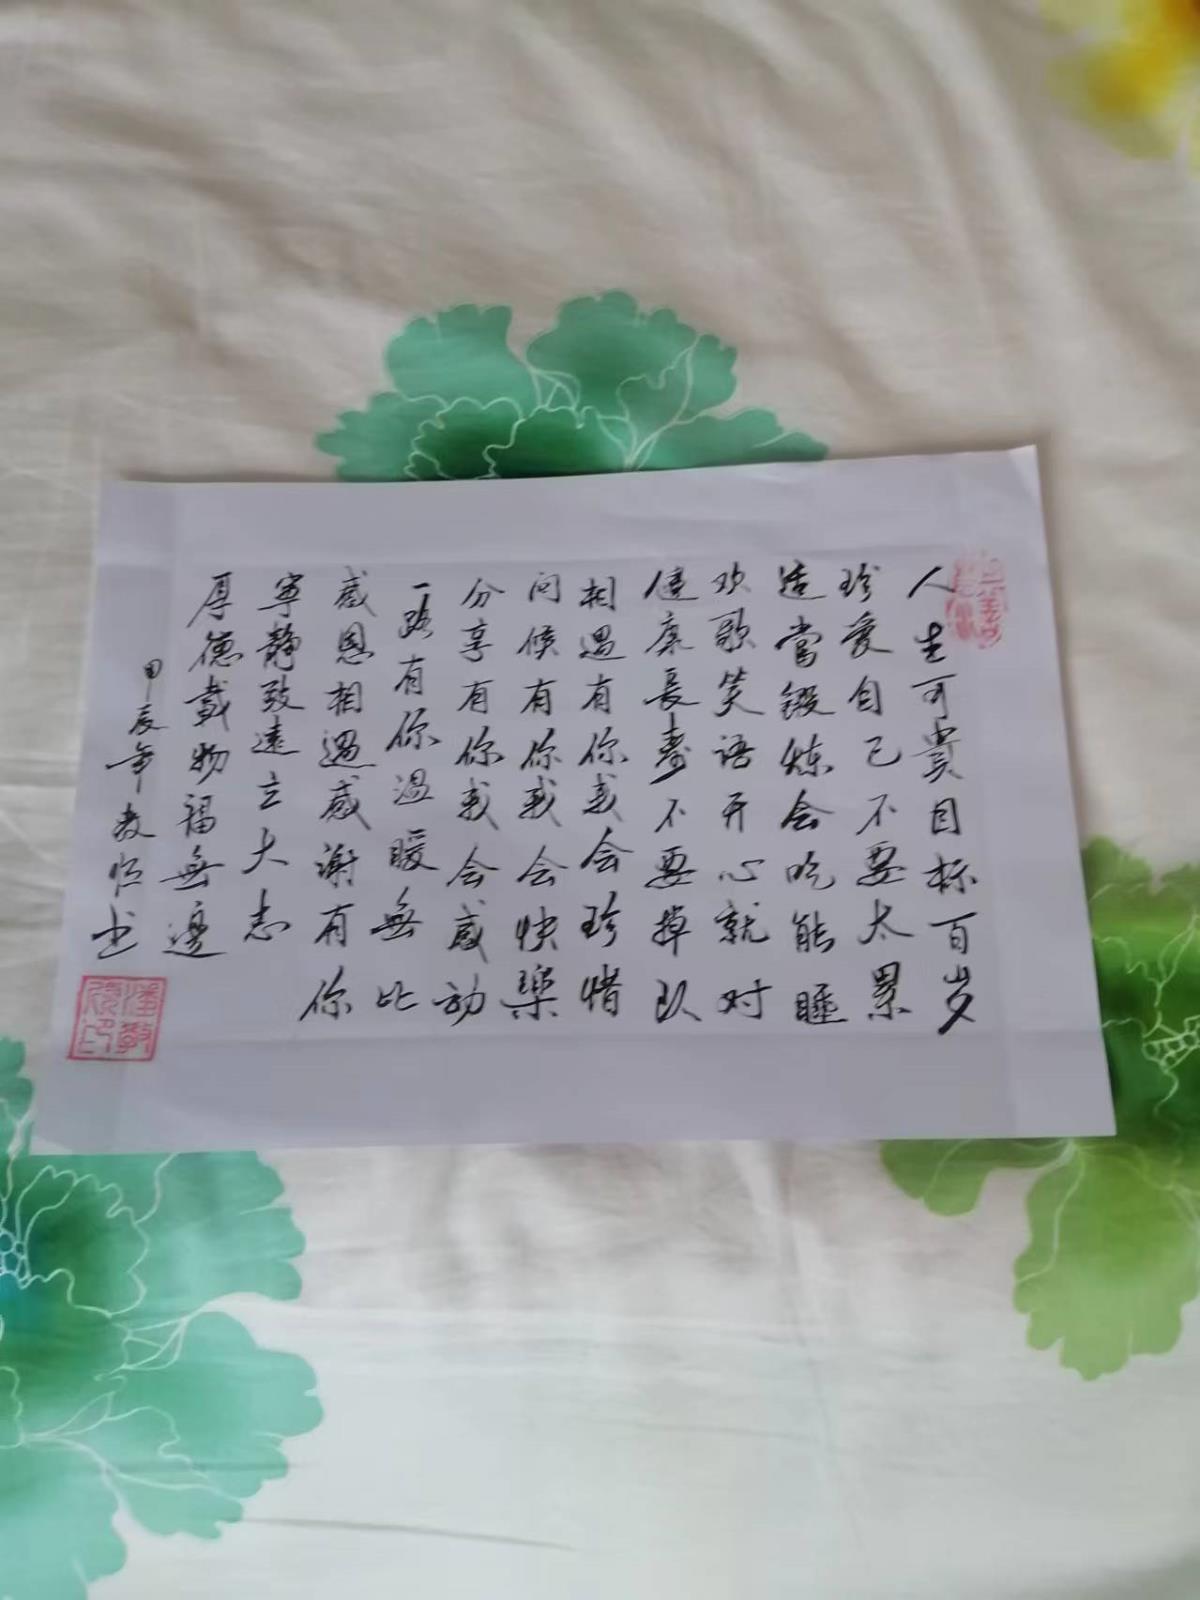 人生可貴目标百岁
珍爱自己不要太累
适當鍛炼会吃能睡
欢歌笑语开心就对
健康長寿不要掉队
相遇有你我会珍惜
问候有你我会快樂
分享有你我会感动
一路有你温暖無比
感恩相遇感谢有你
寧静致遠立大志
厚德載物福無邊
甲辰年敖恒书